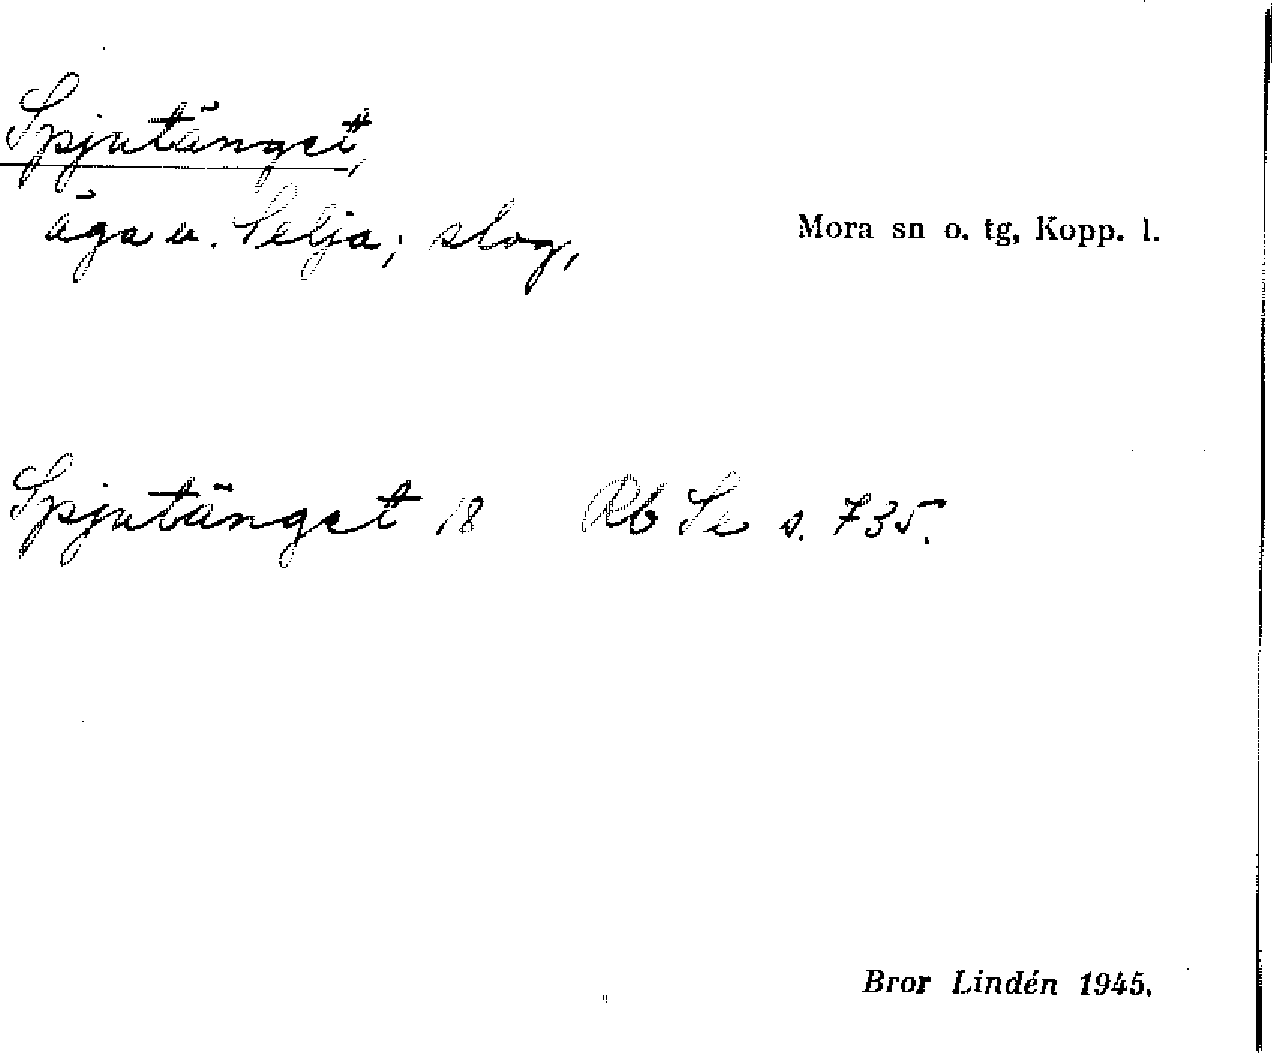 Spjutänget,
äga u. Selja; slog,
Mora sn o. tg, Kopp. l.
Spjutänget 18 Rb Se s. 735.
Bror Lindén 1945.